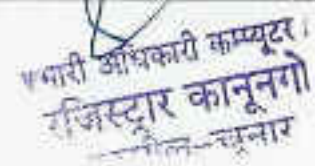 प्रभारी अधिकारी कम्प्यूटर।
रजिस्ट्रार कानूनगो
चुनार